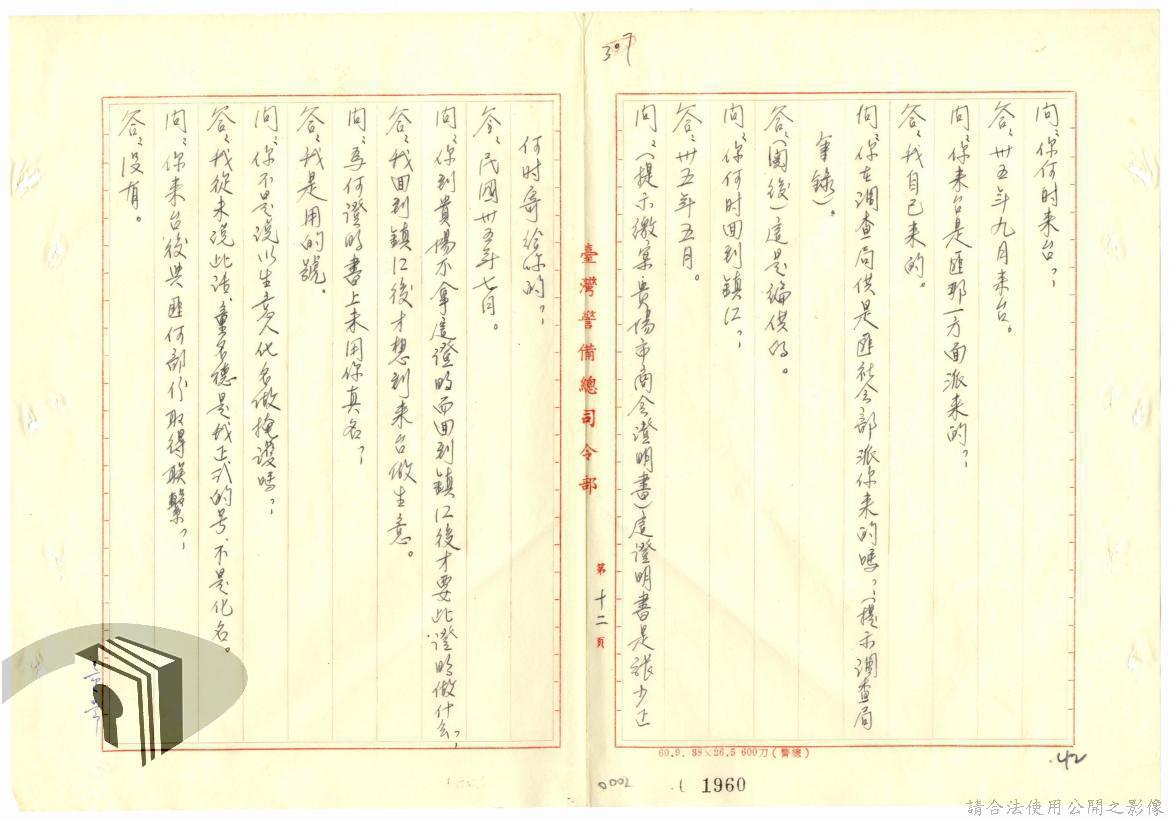 307
問：你何时来台？
答：卅五年九月来台。
問：你来台是匪那一方面派来的？
答：我自己来的。
問：你在調查局供是匪社会部派你来的嗎？（提示調查局
筆錄）。
答：（閱後）這是編供的。
問：你何时回到鎮江？
答：卅五年五月。
問：（提示繳案貴陽市商会證明書）這證明書是張少正
臺灣警備總司令部
第十二頁
何时寄给你的？
答：民國卅五年七月。
問：你到貴陽不拿這證明而回到鎮江後才要此證明做什么？
答：我回到鎮江後才想到来台做生意。
問：為何證明書上未用你真名？
答：我是用的號。
問：你不是说以生意人化名做掩護嗎？
答：我從未说此话、童名德是我正式的号、不是化名。
問：你来台後與匪何部份取得聯繫？
答：没有。
60.9. 38×26.5 600刀（警總）
42
0002
1960
請合法使用公開之影像